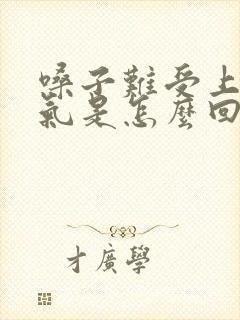 嗓子難受上
氣是怎麼回
才廣學